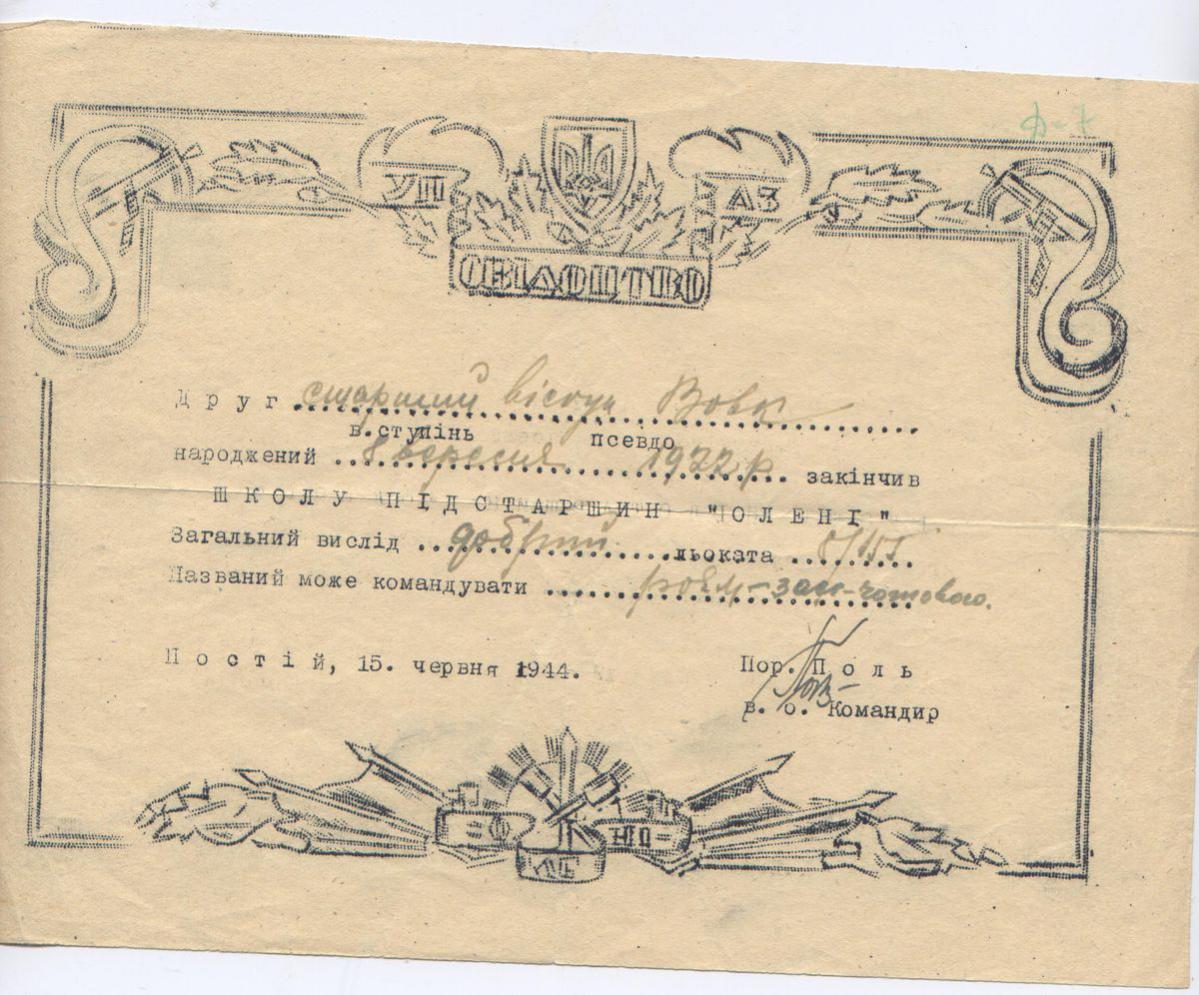 Ф-7
УП АЗ
СВІДОЦТВО
Друг старший вістун Вовк
в.ступінь псевдо
народжений 8 вересня 1922 р. закінчив
ШКОЛУ ПІДСТАРШИН "ОЛЕНІ"
Загальний вислід добрий льоката 8/151
Названий може командувати роєм-зам-чотового.
Постій, 15. червня 1944.
Пор. Поль
в. о. Командир